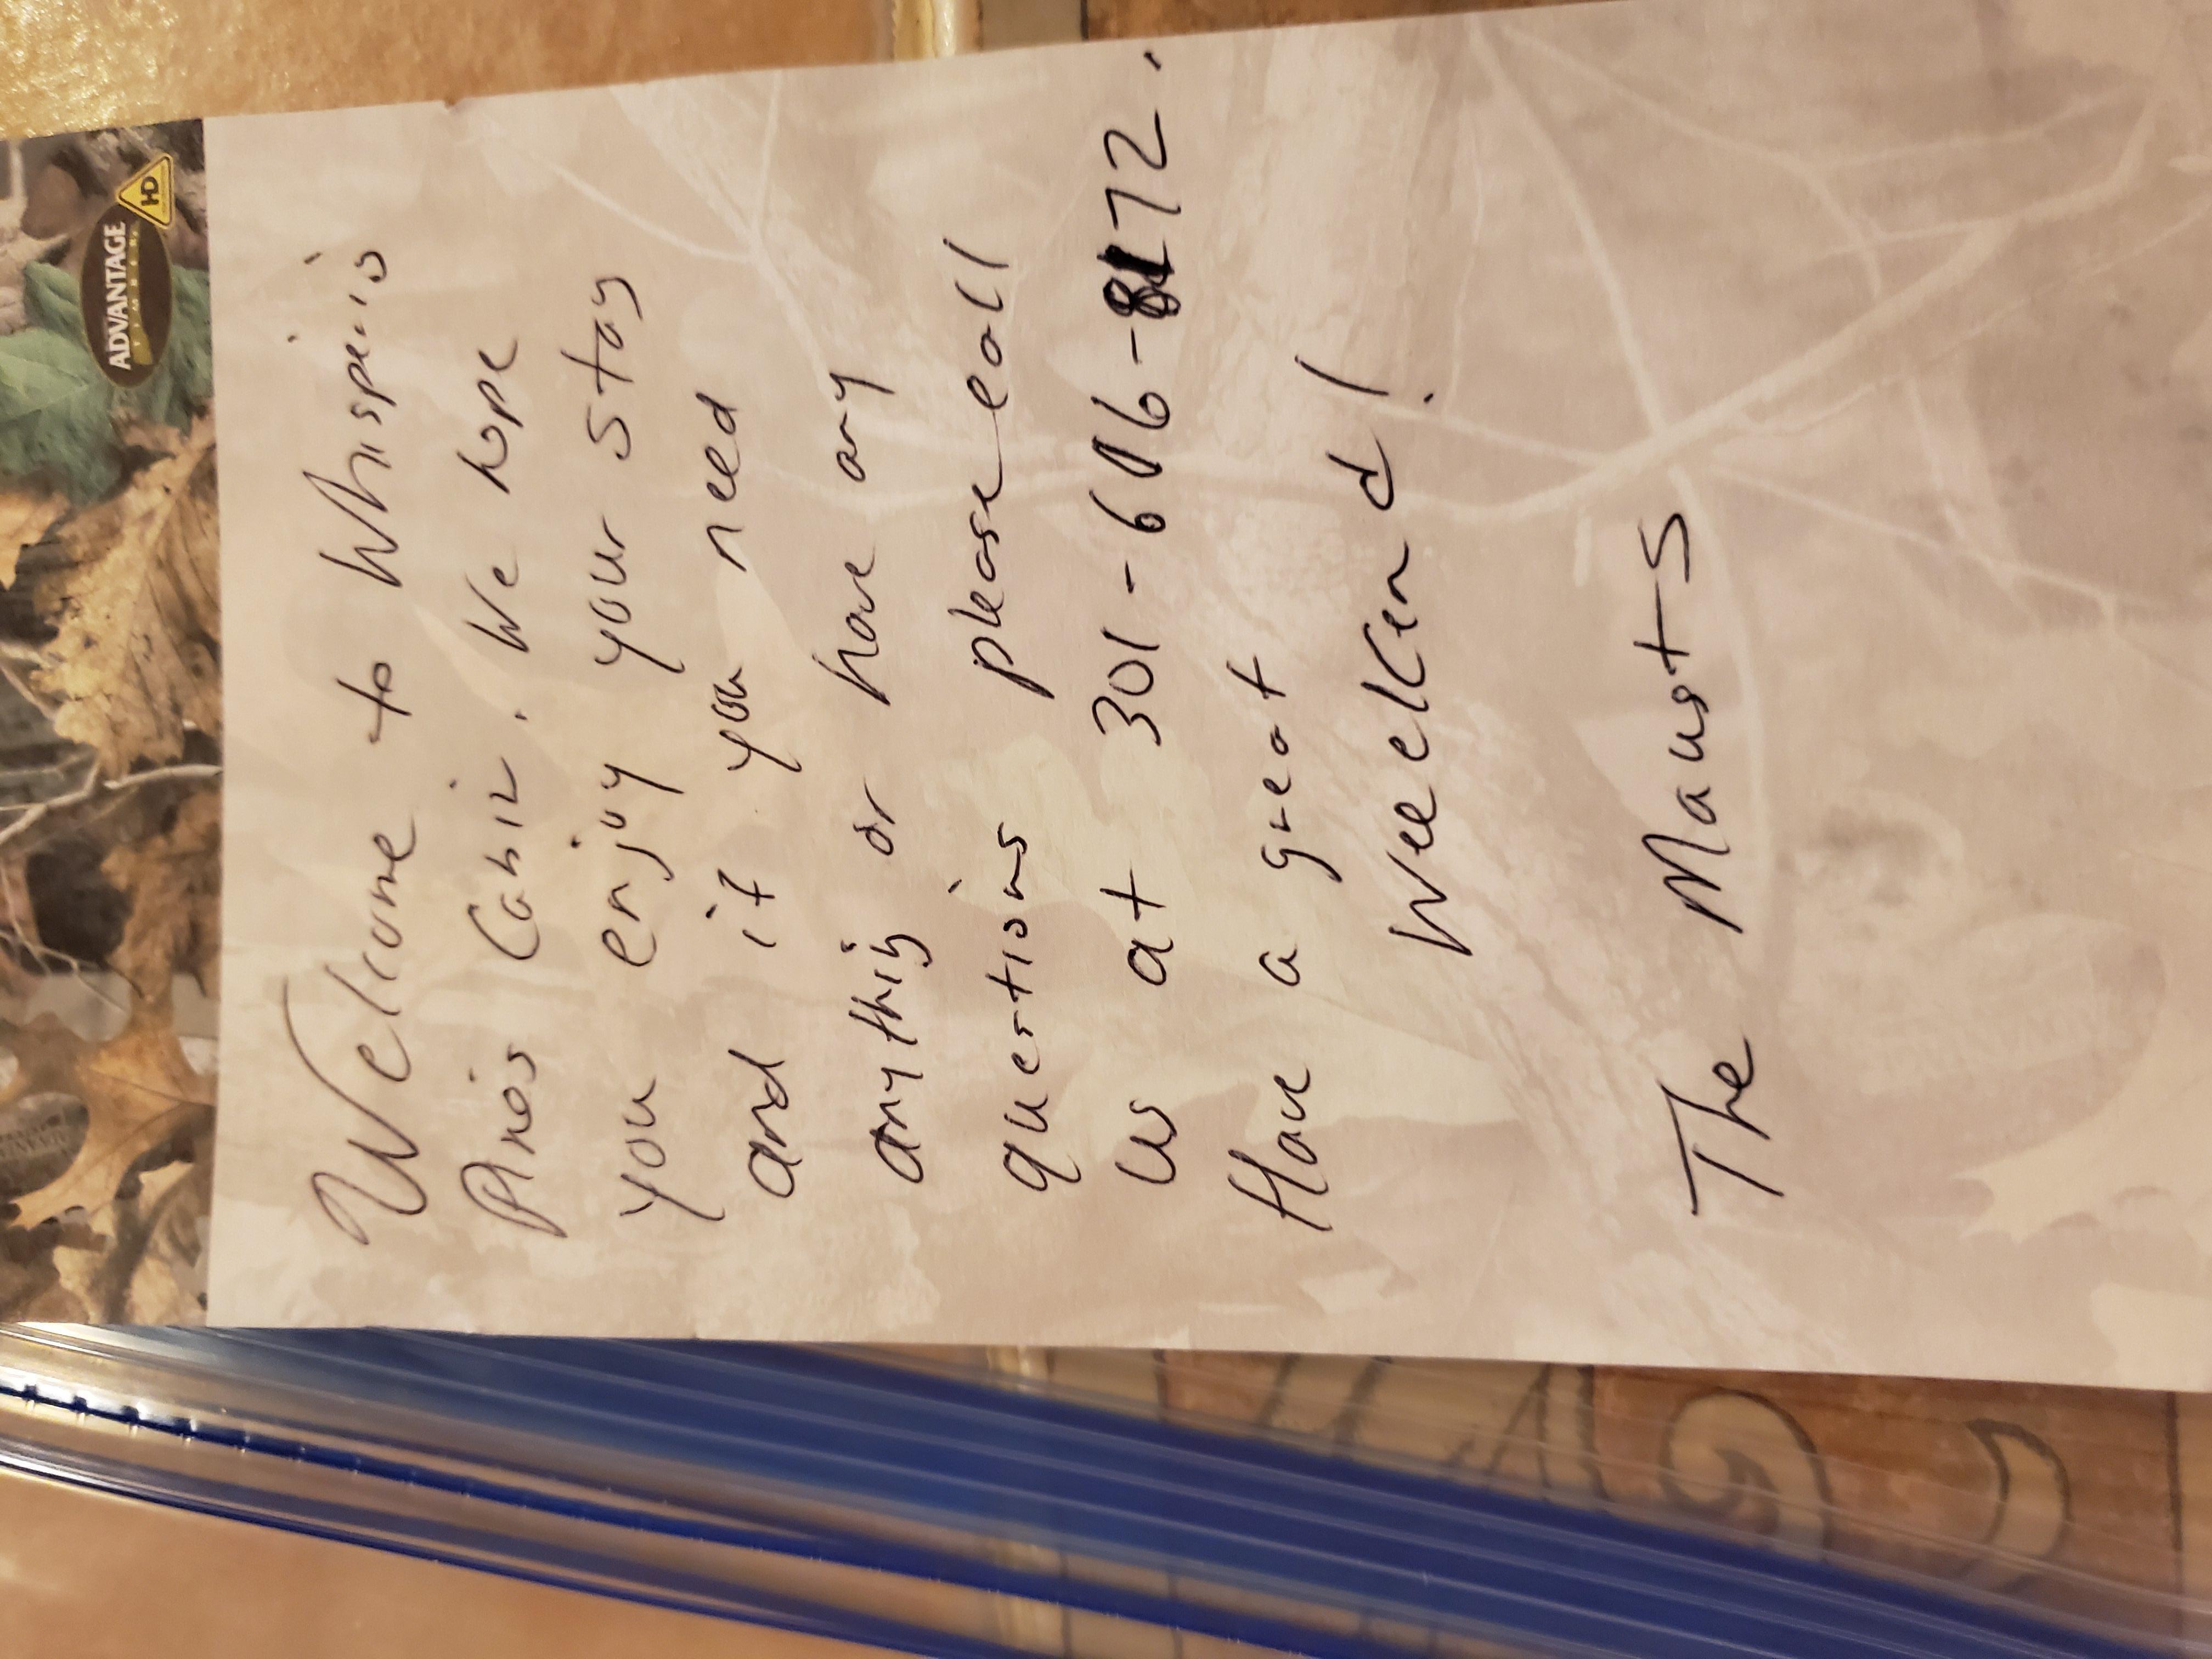 ADVANTAGE
TIMBER
HD
Welcome to Whisperig
Pines Cabin. We hope
you enjoy your stay
and if you need
anythig or have any
questions please call
us at 301-616-8172.
Have a great
Weekend!
The Mausts